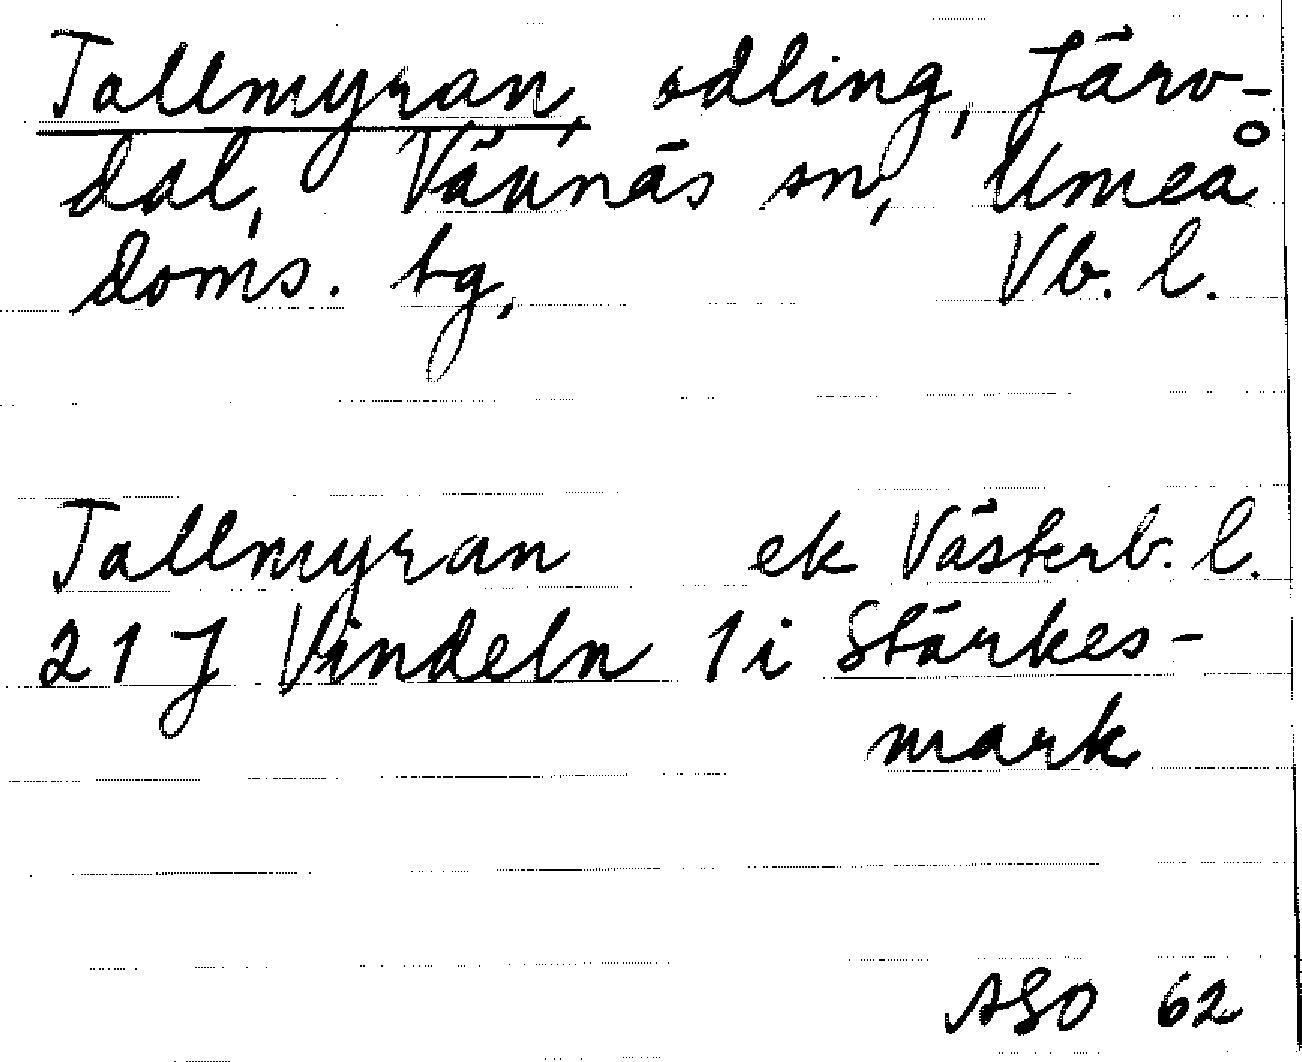 Tallmyran, odling, Järv-
dal, Vännäs sn, Umeå
doms. tg, Vb. l.
Tallmyran ek Västerb. l.
21 J Vindeln 1 i Stärkes-
mark
ASO 62